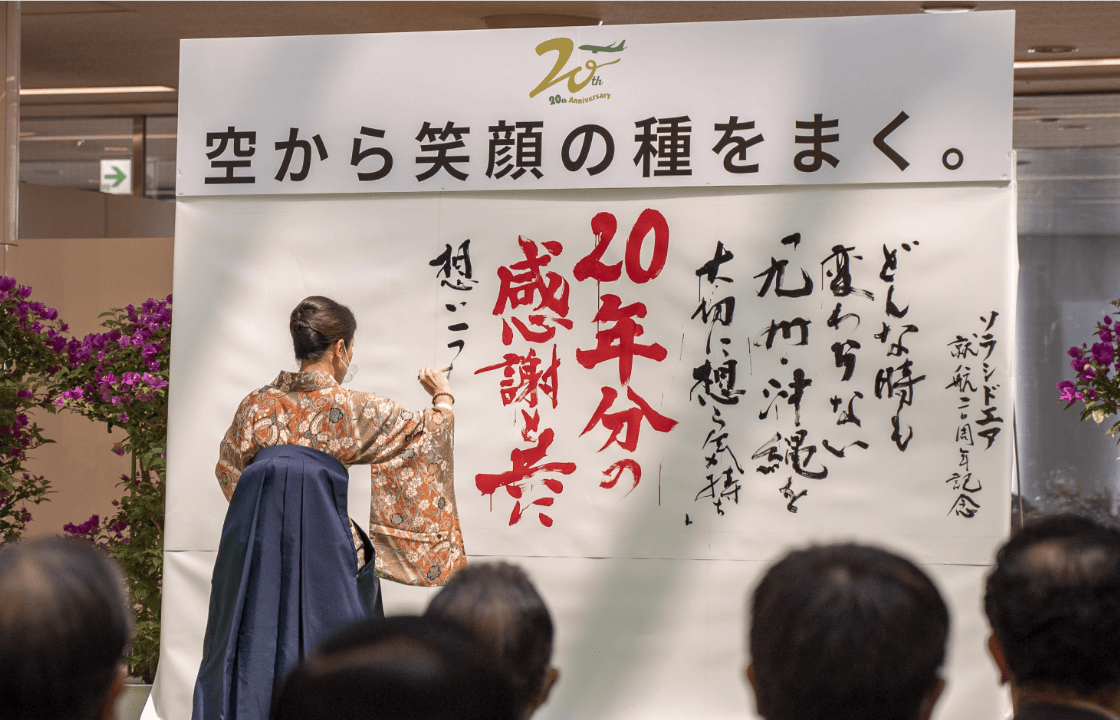 20th
20th Anniversary
空から笑顔の種をまく。
ソラシドエア
就航二〇周年記念
どんな時も
変わらない
「九州・沖縄を
大切に想う気持ち」
20年分の
感謝と共
想